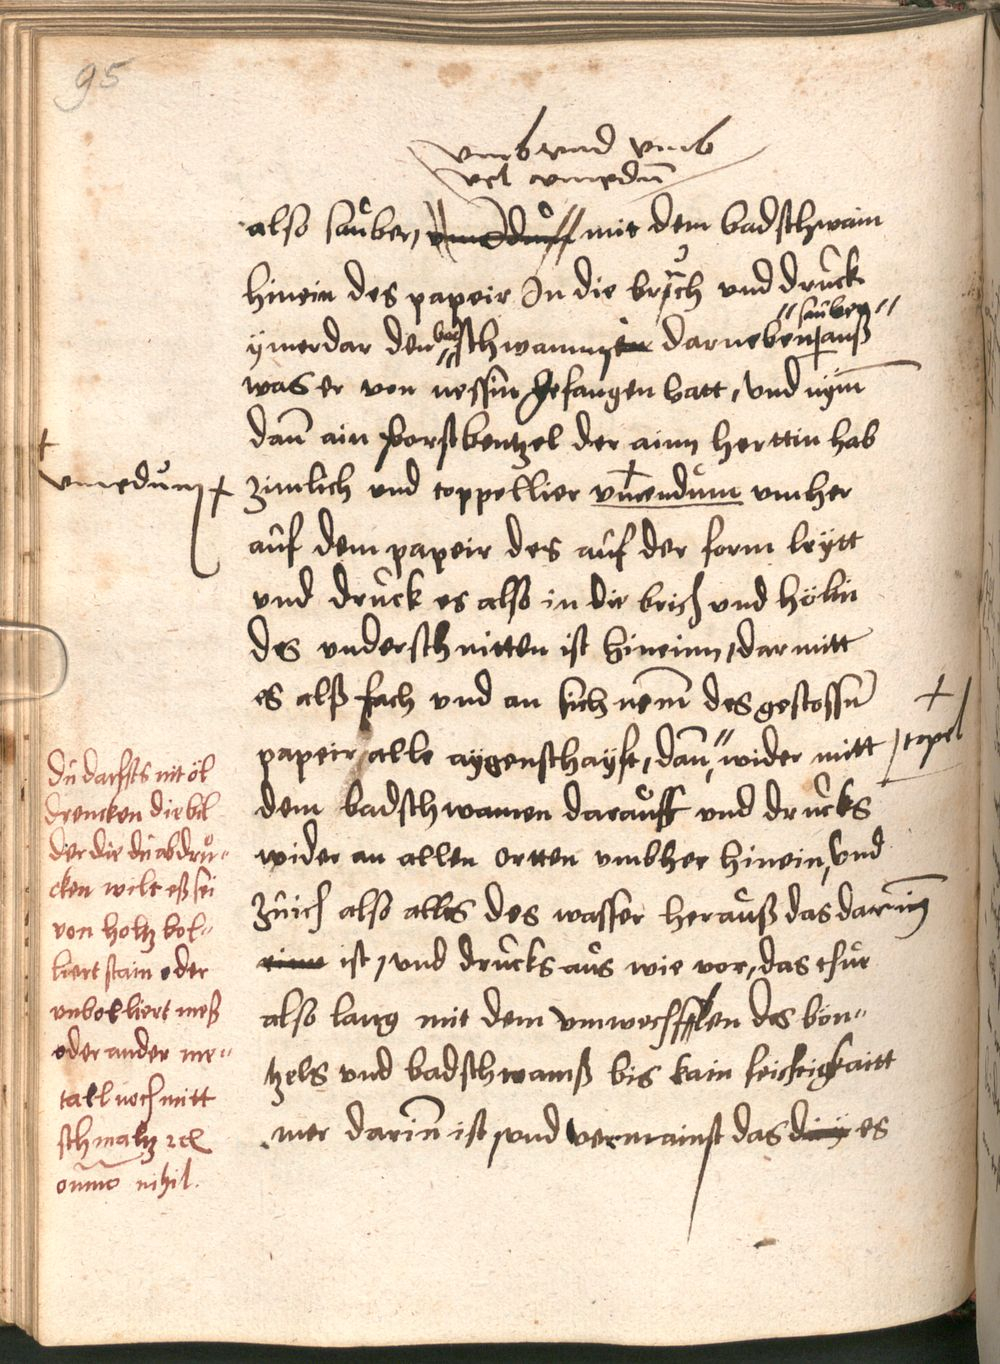 95
umb und umb
vel umedum
also sauber, umedauff mit dem badschwam
hinein des papeir In die brüch und druck
ymerdar den bad schwamm darneben sauber auß
was er von nessin gefangen hatt, und nym̄
dan̄ ain porstbentzel der ainn herttin hab
umedum
zimlich und toppellier umendum umher
auf dem papeir des auf der form leytt
und druck es also in die brich und hölin
des underschnitten ist hineinn, darmitt
es alß fach und an sich nem̄ des gestossn̄
papeir alle aygenschayft, dan̄ wider mitt
topel
dem badschwamen darauff und drucks
wider an allen ortten umbher hinein, und
zuich also alles des wasser herauß das darinn
ist, und drucks aus wie vor, das thue
also lang mit dem umwechsslen des bon"
tzels und badschwamß bis kain feichtigkaitt
mer darin̄ ist, und vermainst das es
du darffts nit öl
drencken die bil
der die du abdru"
cken wilt eß sei
von holtz bol"
liert stain oder
unbolliert meß
oder ander me"
tall noch mitt
schmaltz
om̄o nihil.